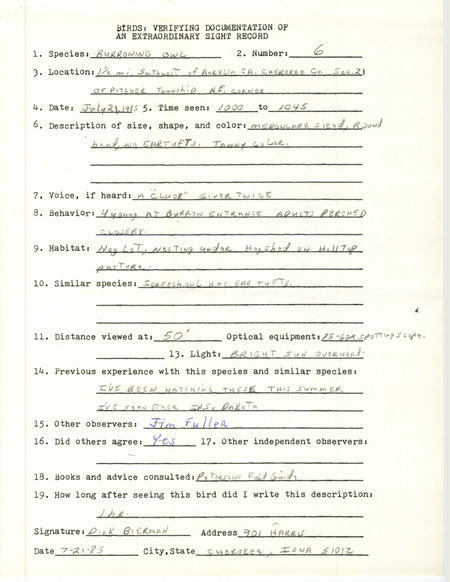 BIRDS: VERIFYING DOCUMENTATION OF
AN EXTRAORDINARY SIGHT RECORD
1. Species: BURROWING OWL 2. Number: 6
3. Location: 1½ mi. Southwest of AURELIA IA. CHEROKEE Co. Sec. 21
OF PITCHER Township N.E. CORNER
4. Date: July 21, 1985 5. Time seen: 1000 to 1045
6. Description of size, shape, and color: MEDIUM sized, Round
head, NO EARTUFTS. TAWNY COLOR.
7. Voice, if heard: A "CLUCK" GIVEN TWICE
8. Behavior: 4 young AT BURROW ENTRANCE ADULTS PERCHED
CLOSEBY.
9. Habitat: Hog LOT, NESTING under Hogshed on HILLTOP
PASTURE.
10. Similar species: SCREECH OWL HAS EAR TUFTS.
11. Distance viewed at: 50' Optical equipment: 25-60x SPOTTING Scope.
13. Light: BRIGHT SUN OVERHEAD.
14. Previous experience with this species and similar species:
I'VE BEEN WATCHING THESE THIS SUMMER
I'VE SEEN IN SO. DAKOTA
15. Other observers: Jim Fuller
16. Did others agree: Yes 17. Other independent observers:
18. Books and advice consulted: Petersons Field Guide
19. How long after seeing this bird did I write this description:
1 hr.
Signature: DICK BIERMAN Address 901 HARRIS
Date 7-21-85 City, State CHEROKEE, IOWA 51012